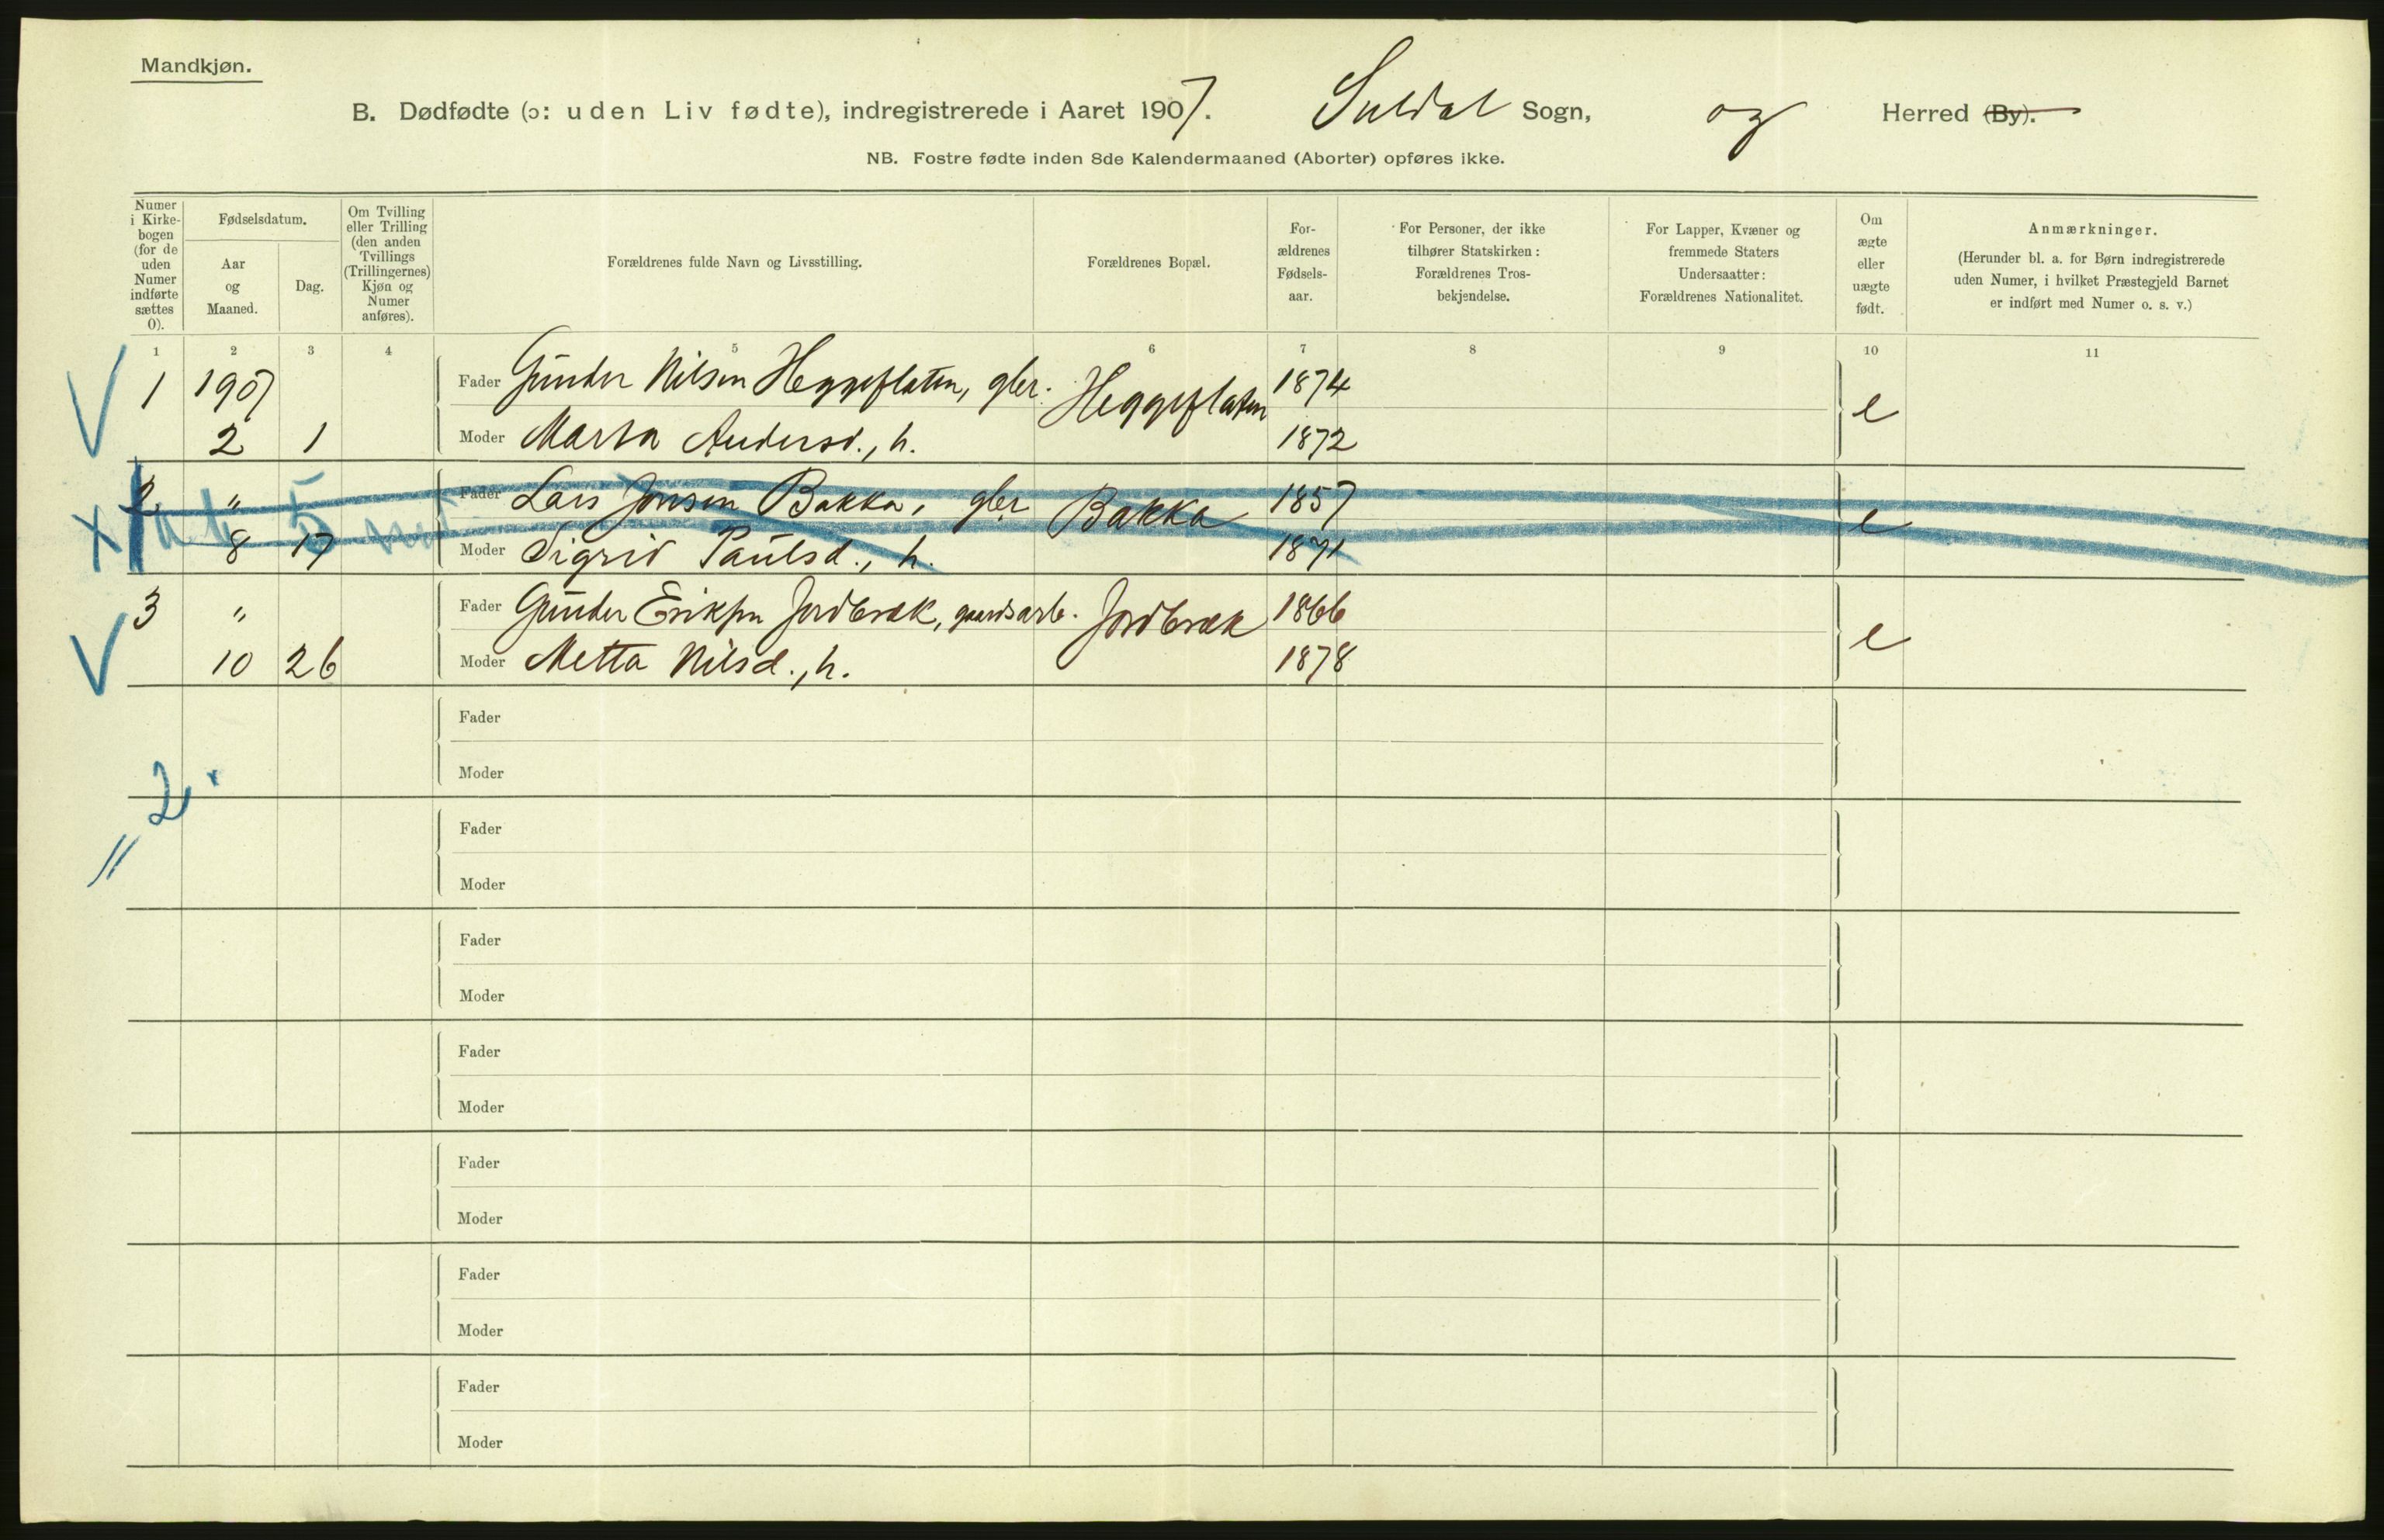 Mandkjøn.
B. Dødfødte (ɔ: uden Liv fødte), indregistrerede i Aaret 1907. Suldal Sogn, og Herred (By).
NB. Fostre fødte inden 8de Kalendermaaned (Aborter) opføres ikke.
Numer i Kirke-bogen (for de uden Numer indførte sættes 0).
Fødselsdatum.
Aar og Maaned.
Dag.
Om Tvilling eller Trilling (den anden Tvillings (Trillingernes) Kjøn og Numer anføres).
Forældrenes fulde Navn og Livsstilling.
Forældrenes Bopæl.
For-ældrenes Fødsels-aar.
For Personer, der ikke tilhører Statskirken: Forældrenes Tros-bekjendelse.
For Lapper, Kvæner og fremmede Staters Undersaatter: Forældrenes Nationalitet.
Om ægte eller uægte født.
Anmærkninger.
(Herunder bl. a. for Børn indregistrerede uden Numer, i hvilket Præstegjeld Barnet er indført med Numer o. s. v.)
1 2 3 4 5 6 7 8 9 10 11
V 1 1907 Fader Gunder Nilsen Heggeflaten, gbr. Heggeflaten 1874 e
2 1 Moder Marta Andersd., h. 1872
2 " Fader Lars Jonsen Bakka, gbr Bakka 1857 e
x 8 17 Moder Sigrid Paulsd., h. 1871
3 " Fader Gunder Eriksen Jordbræk, gaardsarb. Jordbræk 1866 e
V 10 26 Moder Metta Nilsd., h. 1878
Fader
Moder
2
"
Fader
Moder
Fader
Moder
Fader
Moder
Fader
Moder
Fader
Moder
Fader
Moder